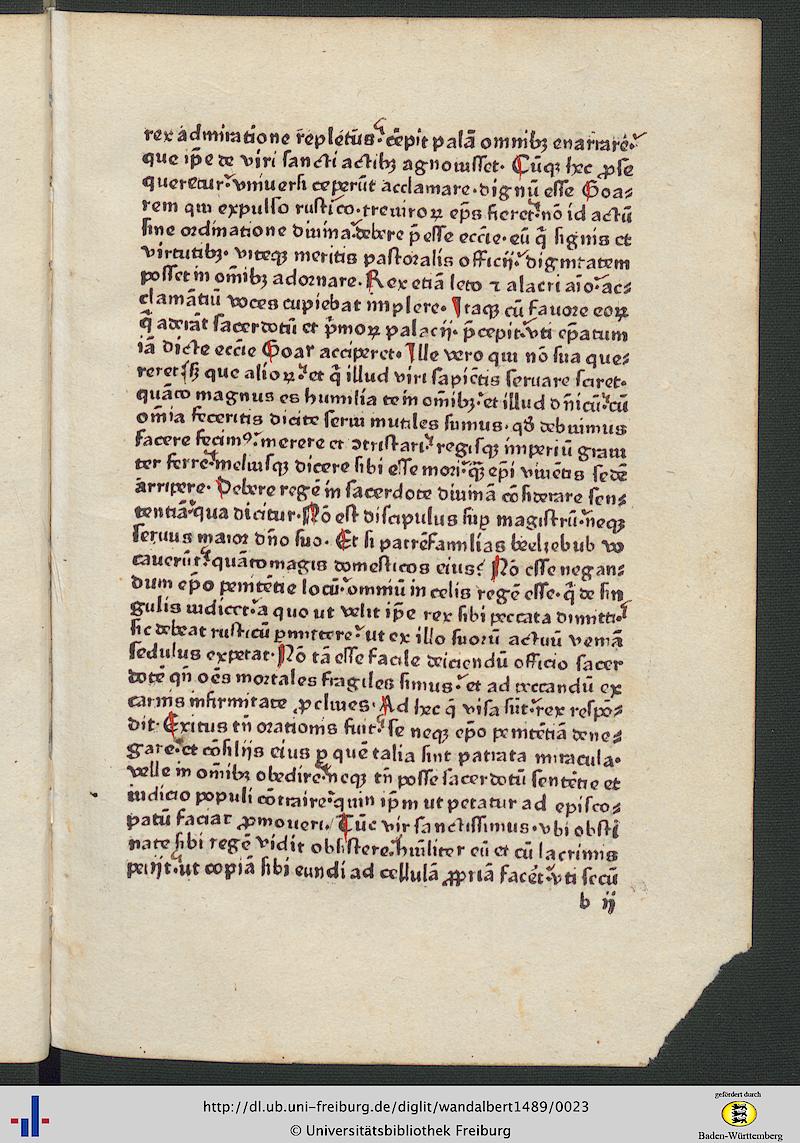 rex admiratione repletus. cēpit palā omnibꝫ enarrare.
que ip̄e de viri sancti actibꝫ agnouisset. Cūqꝫ hec ꝓse
queretur. vniuersi ceperūt acclamare. dignū esse Goa⸗
rem qui expulso rustico. treuiroꝝ ep̄s fieret. nō id actū
sine ordinatione diuina. debere p̄esse ecc̄ie. eū q̄ signis et
virtutibꝫ. viteqꝫ meritis pastoralis officij. dignitatem
posset in om̄ibꝫ adornare. Rex etiā leto ⁊ alacri aīo. ac⸗
clamātiū voces cupiebat implere. Itaqꝫ cū fauore eoꝝ
q̄ aderāt sacerdotū et p̄moꝝ palacij. p̄cepit. vti ep̄atum
iā dicte ecc̄ie Goar acciperet. Ille vero qui nō sua que⸗
reret sꝫ que alioꝝ. et q̄ illud viri sapiētis seruare sciret.
quāto magnus es humilia te in om̄ibꝫ. et illud dn̄icū. cū
om̄ia feceritis dicite serui inutiles sumus. qd̄ debuimus
facere fecimꝰ. merere et ꝯtristari. regisqꝫ imperiū graui
ter ferre. meliusqꝫ dicere sibi esse mori. qꝫ̄ ep̄i viuētis sedē
arripere. Debere regē in sacerdote diuinā cōsiderare sen⸗
tentiā. qua dicitur. Nō est discipulus suꝑ magistrū. neqꝫ
seruus maior dn̄o suo. Et si patrēfamilias beelzebub vo
cauerūt. quātomagis domesticos eius? Nō esse negan⸗
dum ep̄o penitētie locū. omniū in celis regē esse. q̄ de sin
gulis iudicet. a quo ut velit ip̄e rex sibi peccata dimitti.
sic debeat rusticū ꝑmittere. ut ex illo suorū actuū veniā
sedulus expetat. Nō tā esse facile deiciendū officio sacer
dotē qn̄ oēs mortales fragiles simus. et ad peccandū ex
carnis infirmitate ꝓcliues. Ad hec q̄ visa sūt. rex respō⸗
dit. Exitus tn̄ orationis fuit. se neqꝫ ep̄o penitētiā dene⸗
gare. et cōsilijs eius ꝑ quē talia sint patrata miracula.
velle in om̄ibꝫ obedire. neqꝫ tn̄ posse sacerdotū sentētie et
iudicio populi cōtraire. quin ip̄m ut petatur ad episco⸗
patū faciat ꝓmoueri. Tūc vir sanctissimus. vbi obsti
nate sibi regē vidit obsistere. hūiliter eū et cū lacrimis
petijt. ut copiā sibi eundi ad cellulā ꝓpriā facēt. vti secū
b ij
http://dl.ub.uni-freiburg.de/diglit/wandalbert1489/0023
© Universitätsbibliothek Freiburg
gefördert durch
Baden-Württemberg